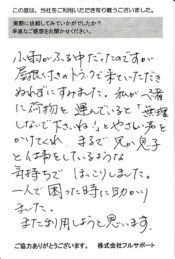 この度は、当社をご利用いただき有り難うございました。
実際に依頼してみていかがでしたか?
率直なご感想をお聞かせください。
小雨がふる中だったのですが
屋根付きのトラックで来ていただき
ぬれずにすみました。私が一緒
に荷物を運んでいると「無理
しないで下さいね!」とやさしい声を
かけてくれ、まるで兄か息子
と仕事をしているような
気持ちで ほっこりしました。
一人で困った時に助かり
ました。
また利用しようと思います。
ご協力ありがとうございます。 株式会社フルサポート